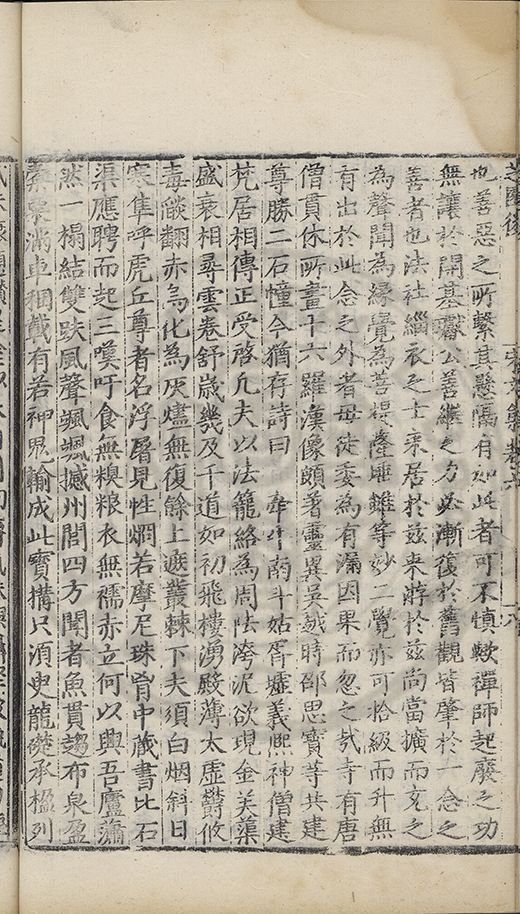 也善惡之所繫其懸隔有如此者可不慎歟禪師起廢之功
無讓於開基獻公善繼之力必漸復於舊觀皆肇於一念之
善者也法社緇衣之士來居於兹來游於兹尚當擴而充之
為聲聞為緣覺為菩提薩埵雖等妙二覺亦可拾級而升無
有出於此念之外者毋徒委為有漏因果而忽之哉寺有唐
僧貫休所畫十六羅漢像頗著靈異吴越時邵思實等共建
尊勝二石幢今猶存詩曰 牽牛南斗姑胥墟義熙神僧建
梵居相傳正受啓凡夫以法籠絡為周阹淤泥欲現金芙蕖
盛衰相尋雲卷舒歲幾及千道如初飛樓湧殿薄太虛欝攸
毒燄翻赤烏化為灰燼無復餘上遮叢棘下夫須白烟斜日
寒隼呼虎丘尊者名浮屠見性烱若摩尼珠胷中藏書比石
渠應聘而起三嘆吁食無糗粮衣無襦赤立何以興吾廬蕭
然一榻結雙趺風聲颯颯撼州閭四方聞者魚貫趨布泉盈
橐粟滿車相載有若神鬼輸成此寶搆只須臾龍礎承楹列